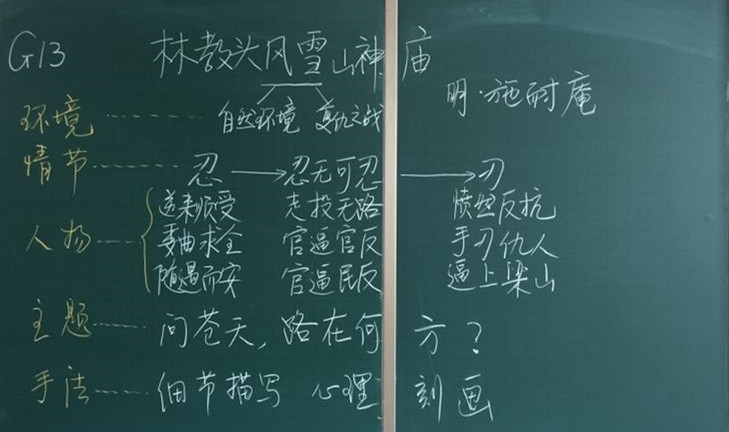 G13 林教头风雪山神庙
明·施耐庵
环境 自然环境 复仇之战
情节 忍 → 忍无可忍 → 刃
逆来顺受 走投无路 愤然反抗
人物 委曲求全 官逼官反 手刃仇人
随遇而安 官逼民反 逼上梁山
主题 问苍天,路在何方?
手法 细节描写 心理刻画